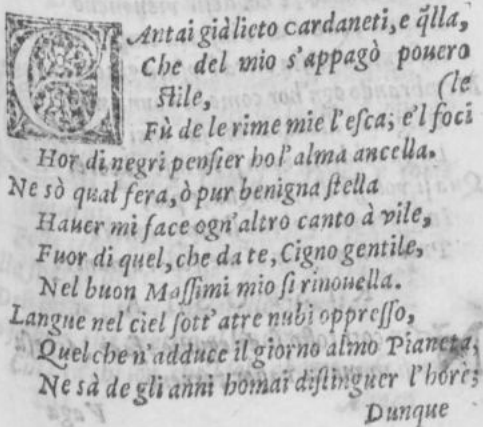 CAntai già lieto cardaneti, e q̃lla,
Che del mio s'appagò pouero
ſtile, (le
Fù de le rime mie l'eſca; e'l foci
Hor di negri penſier hol' alma ancella.
Ne sò qual fera, ò pur benigna ſtella
Hauer mi face ogn'altro canto à vile,
Fuor di quel, che da te, Cigno gentile,
Nel buon Maſſimi mio ſi rinouella.
Langue nel ciel ſott' atre nubi oppreſſo,
Quel che n'adduce il giorno almo Pianeta,
Ne sà de gli anni homai diſtinguer l'hore;
Dunque